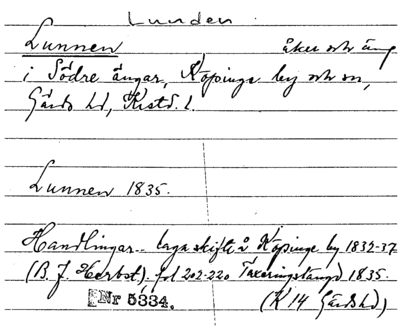 Lunden.
Lunnen åker och äng
i Södre ängar, Köpinge by och sn,
Gärds hd, Kristd. l.
Lunnen 1835.
Handlingar.. laga skifte å Köpinge by 1832-37
(B. J. Herbst), fol 202-220 Taxeringslängd 1835.
Nr 5334. (K 14 Gärds hd)